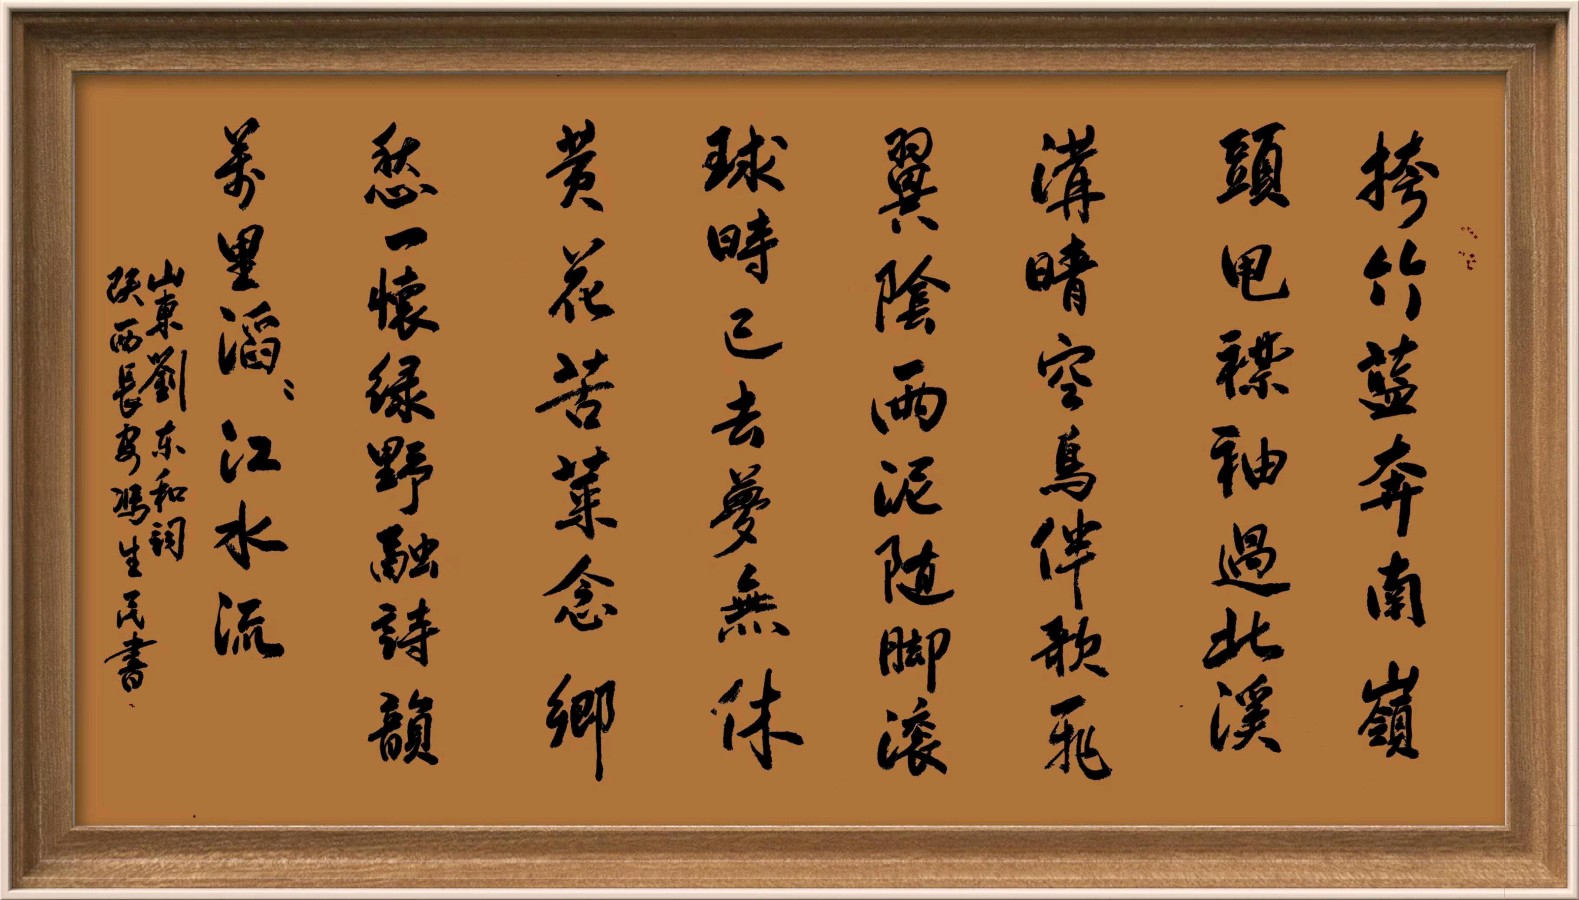 挎竹藍奔南嶺
頭甩襟袖過北溪
溝晴空鳥伴歌飛
翼陰雨泥随脚滚
球時已去夢無休
黄花苦菜念鄉
愁一懷绿野融詩韻
萬里滔〻江水流
山東劉东和詞
陕西長安馮生民書